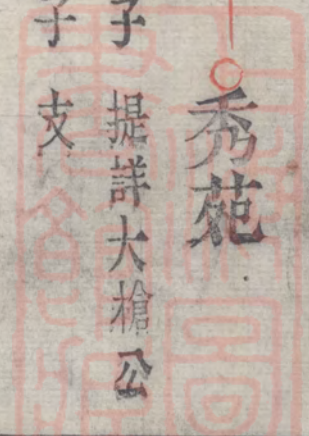 秀苑
子 提詳大槍公
子 支